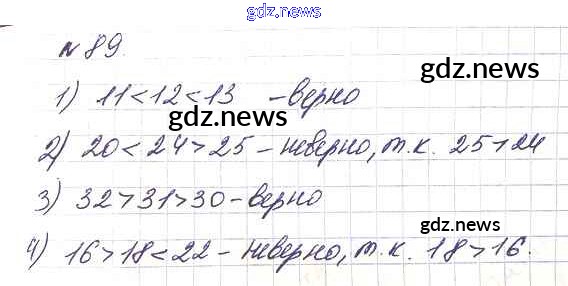 gdz.news
№ 89.
gdz.news
1) 11<12<13 - верно
gdz.news
2) 20<24>25 - неверно, т.к. 25>24
3) 32>31>30 - верно
gdz.news
4) 16>18<22 - неверно, т.к. 18>16.
gdz.news